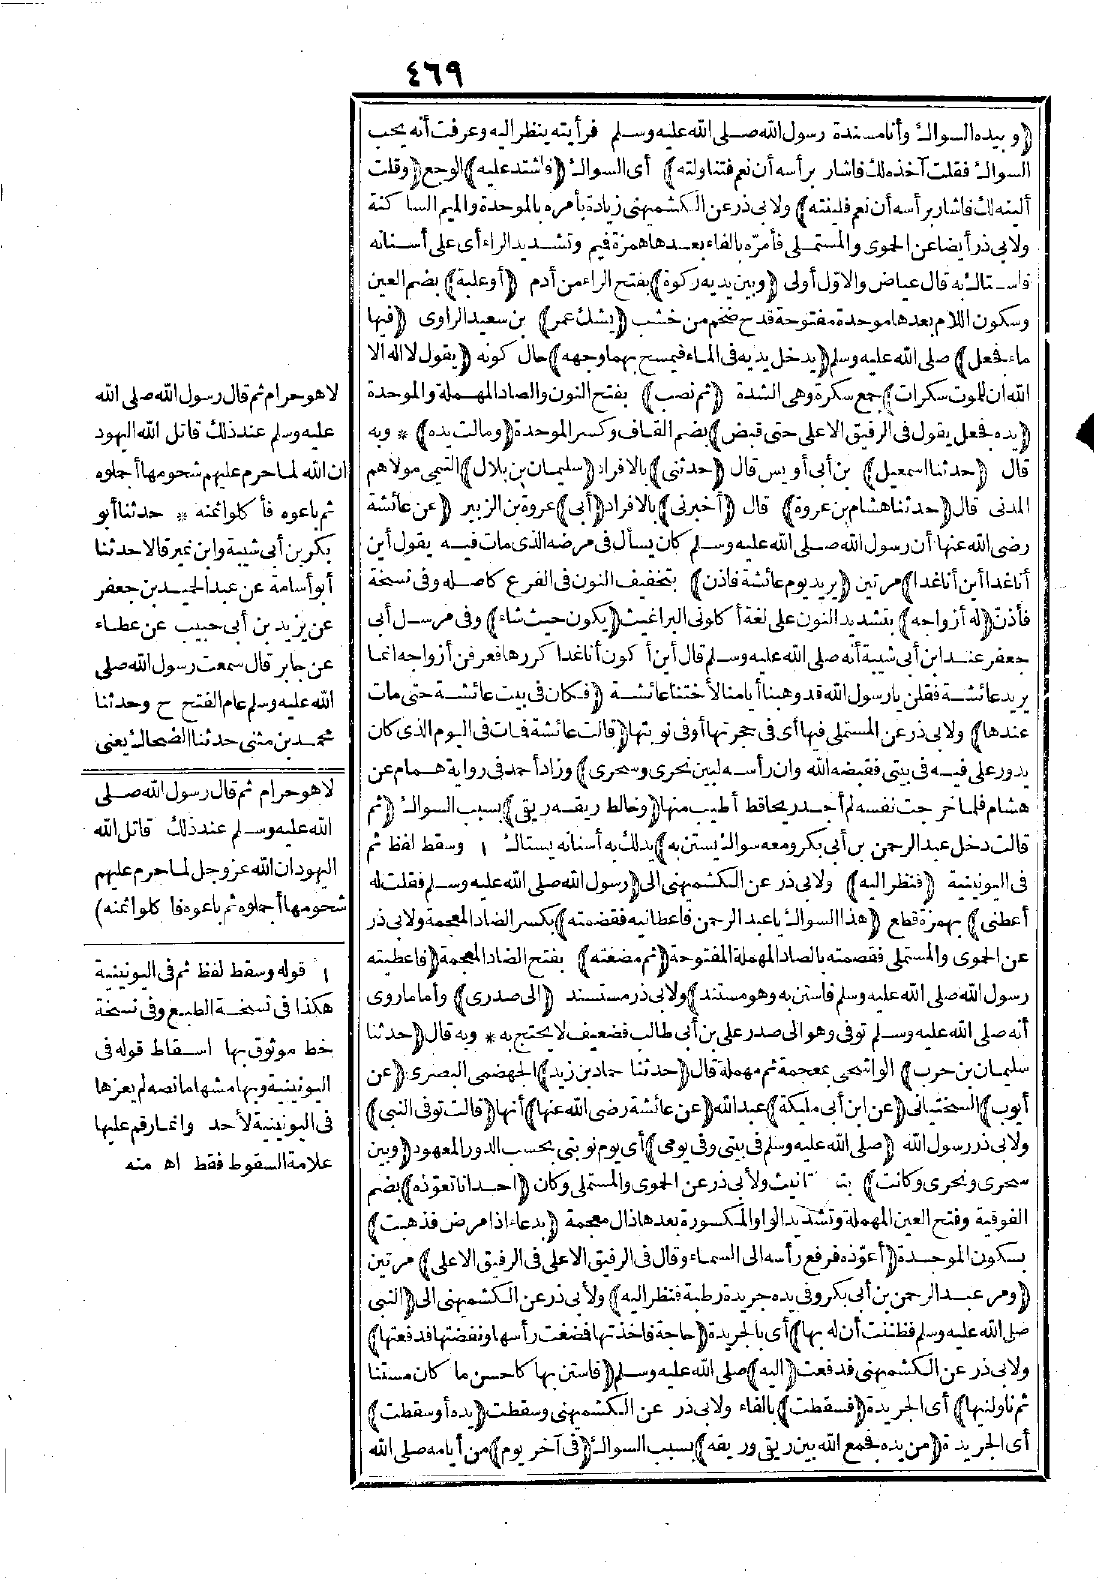 ٤٦٩
(وبيده السواك وأنا مسندة رسول الله صلى الله عليه وسلم فرأيته ينظر اليه وعرفت أنه يحب
السواك فقلت آخذه لك فاشار برأسه أن نعم فتناولته) أى السواك (فاشتد عليه) الوجع (وقلت
ألينه لك فاشار برأسه أن نعم فلينته) ولابى ذر عن الكشميهنى زيادة بأمره بالموحدة والميم الساكنة
ولابى ذر أيضا عن الحموى والمستملى فأمرّه بالفاء بعدها همزة فيم وتشديد الراء أى على أسنانه
فاستاك به قال عياض والاوّل أولى (وبين يديه ركوة) بفتح الراء من أدم (أو علبة) بضم العين
وسكون اللام بعدها موحدة مفتوحة قدح ضخم من خشب (يشك عمر) بن سعيد الراوى (فيها
ماء فجعل) صلى الله عليه وسلم (يدخل يديه فى الماء فيمسح بهما وجهه) حال كونه (يقول لا اله الا
الله ان للموت سكرات) جمع سكرة وهى الشدة (ثم نصب) بفتح النون والصاد المهملة والموحدة
(يده فجعل يقول فى الرفيق الاعلى حتى قبض) بضم القاف وكسر الموحدة (ومالت يده) * وبه
قال (حدثنا اسمعيل) بن أبى أويس قال (حدثنى) بالافراد (سليمان بن بلال) التيمى مولاهم
المدنى قال (حدثنا هشام بن عروة) قال (أخبرنى) بالافراد (أبى) عروة بن الزبير (عن عائشة
رضى الله عنها أن رسول الله صلى الله عليه وسلم كان يسأل فى مرضه الذى مات فيه يقول أين
أنا غدا أين أنا غدا) مرتين (يريد يوم عائشة فاذن) بتخفيف النون فى الفرع كاصله وفى نسخة
فأذنّ (له أزواجه) بتشديد النون على لغة أكلونى البراغيث (يكون حيث شاء) وفى مرسل أبى
جعفر عند ابن أبى شيبة أنه صلى الله عليه وسلم قال أين أكون أنا غدا كررها فعرفن أزواجه انما
يريد عائشة فقلن يا رسول الله قد وهبنا أيامنا لأختنا عائشة (فكان فى بيت عائشة حتى مات
عندها) ولابى ذر عن المستملى فيها أى فى حجرتها أو فى نوبتها (قالت عائشة فمات فى اليوم الذى كان
يدور على فيه فى بيتى فقبضه الله وان رأسه لبين نحرى وسحرى) وزاد أحمد فى رواية همام عن
هشام فلما خرجت نفسه لم أجد ريحا قط أطيب منها (وخالط ريقه ريقى) بسبب السواك (ثم
قالت دخل عبد الرحمن بن أبى بكر ومعه سواك يستن به) يدلك به أسنانه يستاك ١ وسقط لفظ ثم
فى اليونينية (فنظر اليه) ولابى ذر عن الكشميهنى الى (رسول الله صلى الله عليه وسلم فقلت له
أعطنى) بهمزة قطع (هذا السواك يا عبد الرحمن فاعطانيه فقضمته) بكسر الضاد المعجمة ولابى ذر
عن الحموى والمستملى فقصمته بالصاد المهملة المفتوحة (ثم مضغته) بفتح الضاد المعجمة (فاعطيته
رسول الله صلى الله عليه وسلم فاستن به وهو مستند) ولابى ذر مستسند (الى صدرى) وأما ما روى
أنه صلى الله عليه وسلم توفى وهو الى صدر على بن أبى طالب فضعيف لا يحتج به * وبه قال (حدثنا
سليمان بن حرب) الواشحى بمعجمة ثم مهملة قال (حدثنا حماد بن زيد) الجهضمى البصرى (عن
أيوب) السختيانى (عن ابن أبى مليكة) عبد الله (عن عائشة رضى الله عنها) أنها (قالت توفى النبى)
ولابى ذر رسول الله (صلى الله عليه وسلم فى بيتى وفى يومى) أى يوم نوبتى بحسب الدور المعهود (وبين
سحرى ونحرى وكانت) بتاء التأنيث ولأبى ذر عن الحموى والمستملى وكان (احدانا تعوّذه) بضم
الفوقية وفتح العين المهملة وتشديد الواو المكسورة بعدها ذال معجمة (بدعاء اذا مرض فذهبت)
بسكون الموحدة (أعوّذه فرفع رأسه الى السماء وقال فى الرفيق الاعلى فى الرفيق الاعلى) مرتين
(ومر عبد الرحمن بن أبى بكر وفى يده جريدة رطبة فنظر اليه) ولأبى ذر عن الكشميهنى الى (النبى
صلى الله عليه وسلم فظننت أن له بها) أى بالجريدة (حاجة فاخذتها فمضغت رأسها ونفضتها فدفعتها)
ولابى ذر عن الكشميهنى فدفعت (اليه) صلى الله عليه وسلم (فاستن بها كاحسن ما كان مستنا
ثم ناولنيها) أى الجريدة (فسقطت) بالفاء ولابى ذر عن الكشميهنى وسقطت (يده أو سقطت)
أى الجريدة (من يده فجمع الله بين ريقى وريقه) بسبب السواك (فى آخر يوم) من أيامه صلى الله
لا هو حرام ثم قال رسول الله صلى الله
عليه وسلم عند ذلك قاتل الله اليهود
ان الله لما حرم عليهم شحومها أجملوه
ثم باعوه فأكلوا ثمنه * حدثنا أبو
بكر بن أبى شيبة وابن نمير قالا حدثنا
أبو أسامة عن عبد الحميد بن جعفر
عن يزيد بن أبى حبيب عن عطاء
عن جابر قال سمعت رسول الله صلى
الله عليه وسلم عام الفتح ح وحدثنا
محمد بن مثنى حدثنا الضحاك يعنى
لا هو حرام ثم قال رسول الله صلى
الله عليه وسلم عند ذلك قاتل الله
اليهود ان الله عز وجل لما حرم عليهم
شحومها أجملوه ثم باعوه فاكلوا ثمنه)
١ قوله وسقط لفظ ثم فى اليونينية
هكذا فى نسخة الطبع وفى نسخة
خط موثوق بها اسقاط قوله فى
اليونينية وبهامشها ما نصه لم يعزها
فى اليونينية لأحد وانما رقم عليها
علامة السقوط فقط اه منه